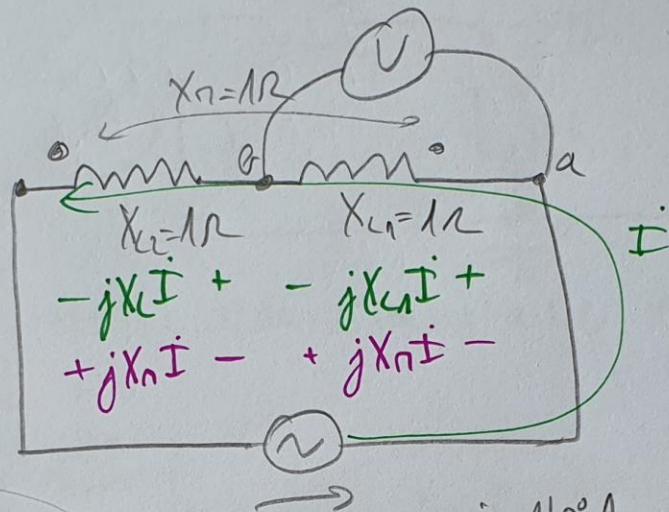 V
X_M=1Ω
b
a
X_L2=1Ω X_L1=1Ω
İ
-jX_Lİ + - jX_L1İ +
+jX_Mİ - + jX_Mİ -